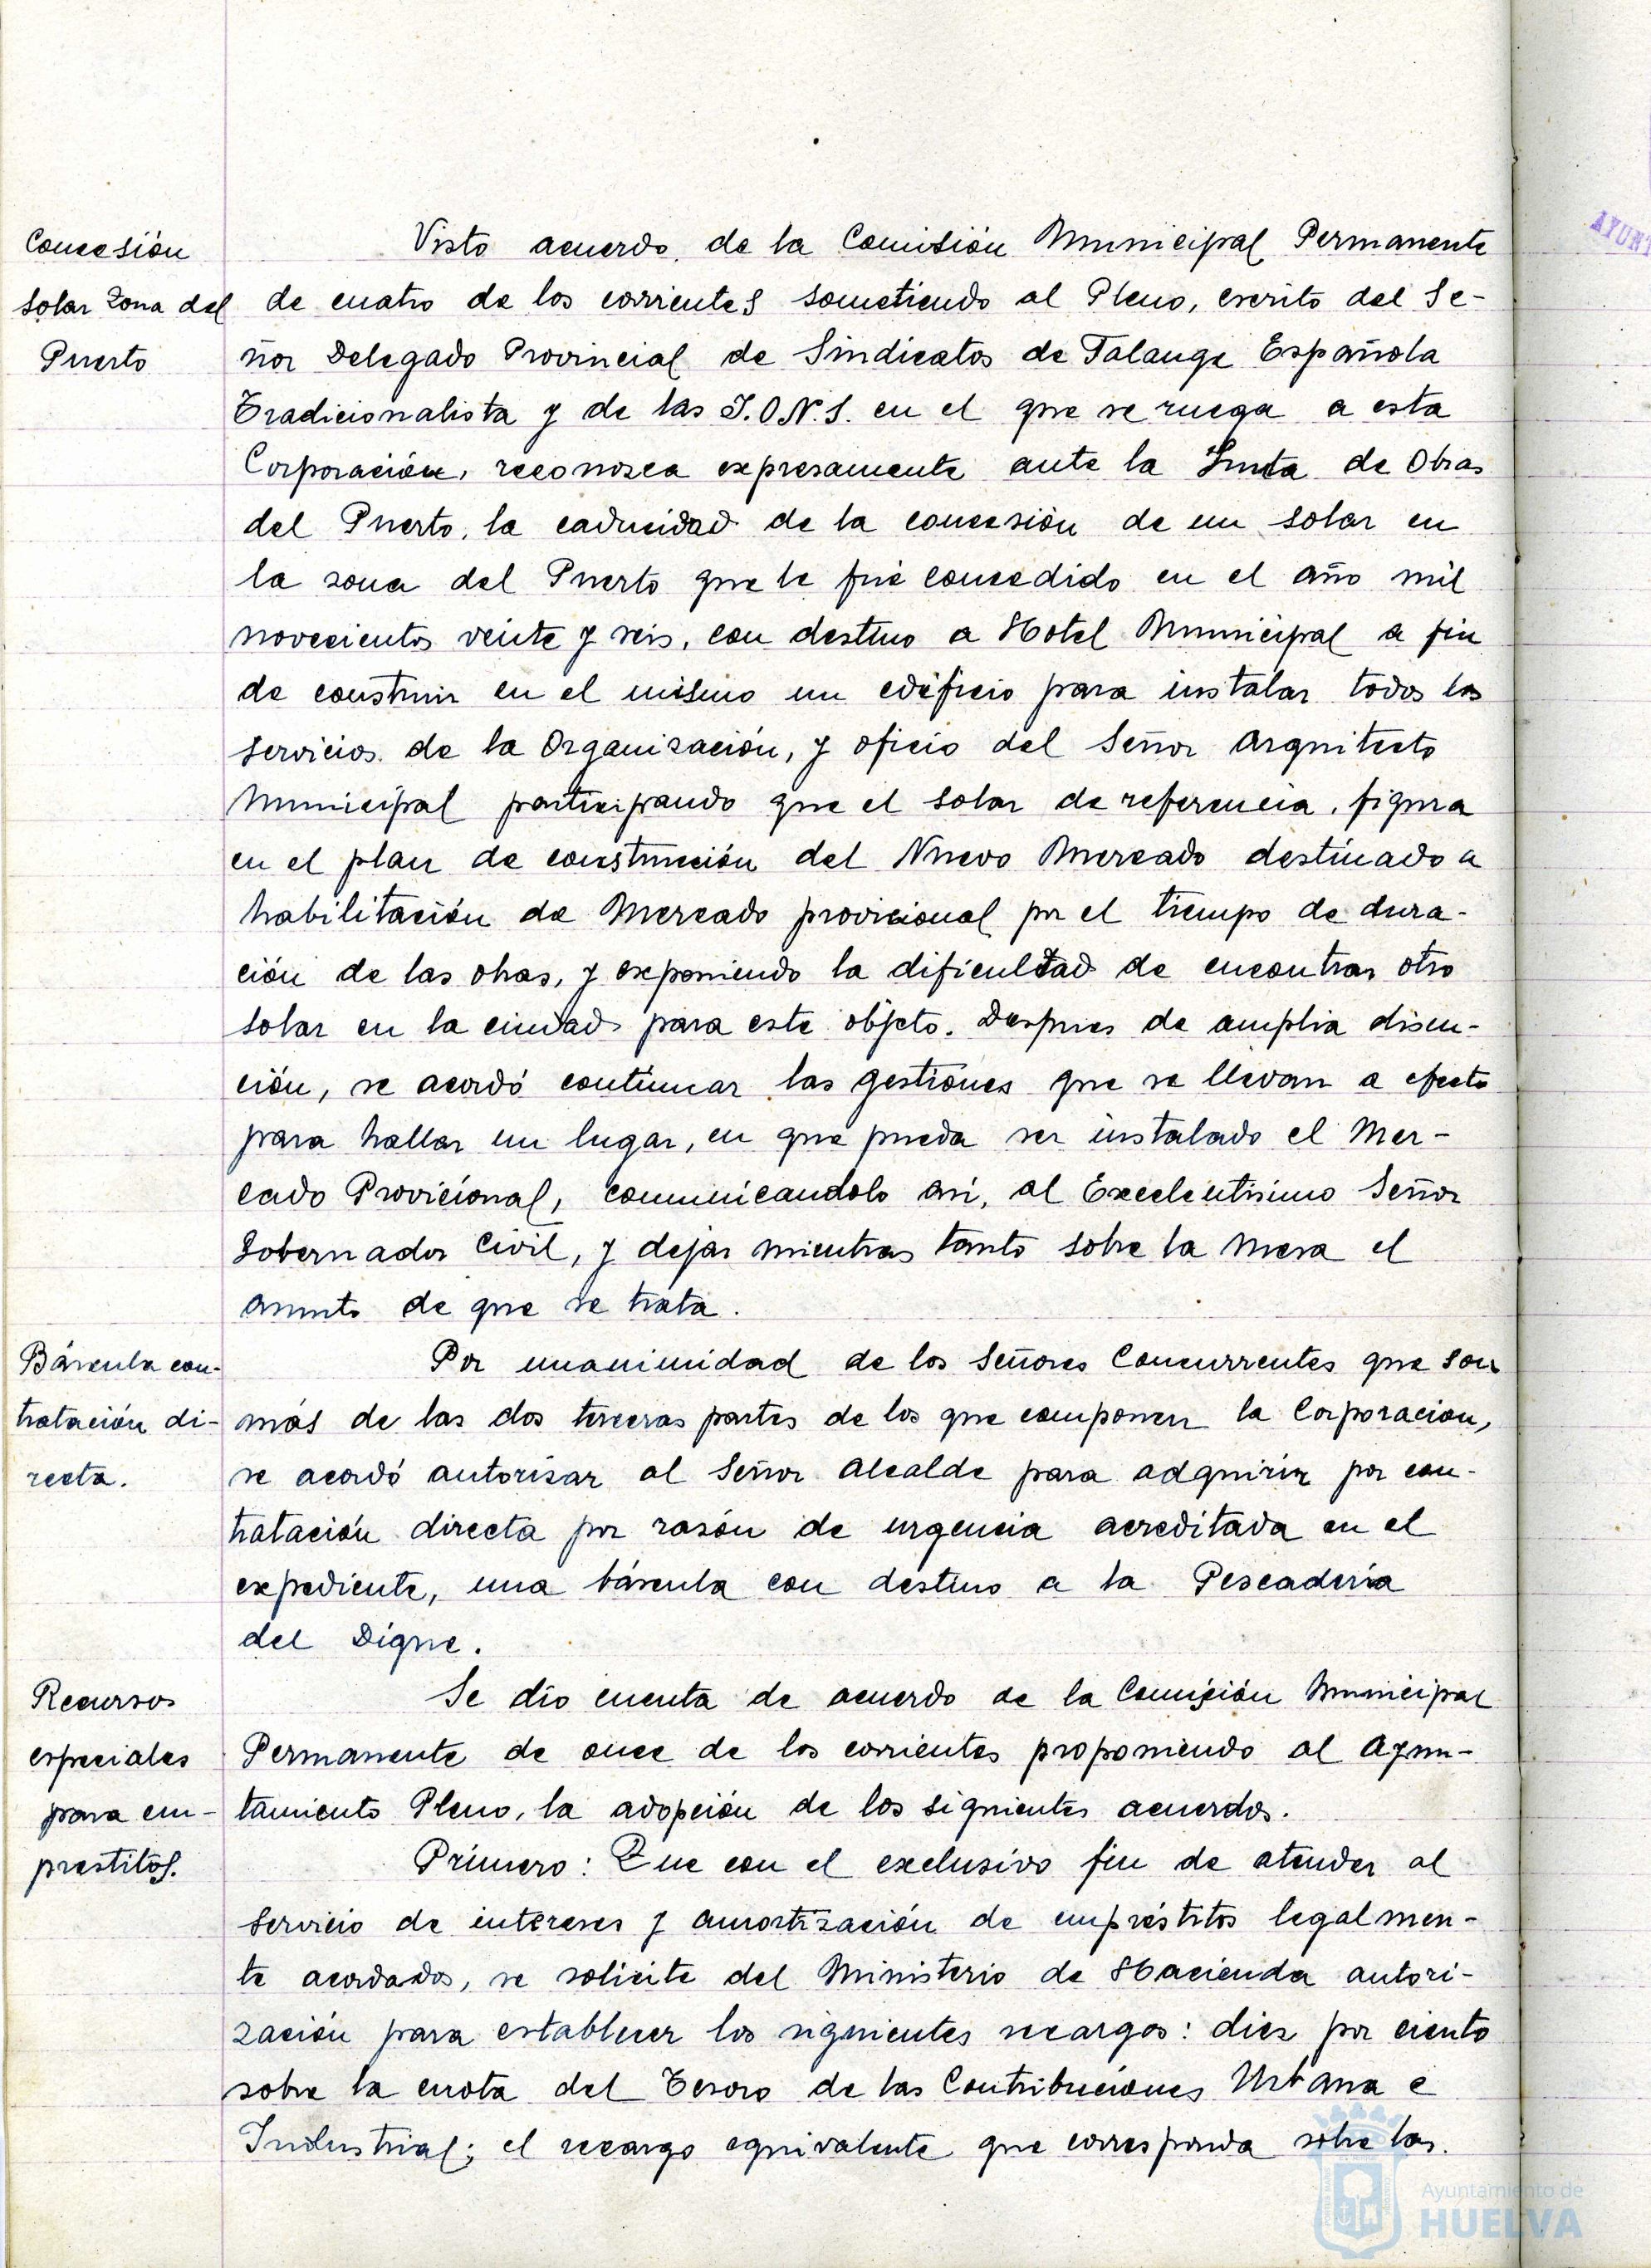 Concesión
solar zona del
Puerto
Visto acuerdo, de la Comisión Municipal Permanente
de cuatro de los corrientes sometiendo al Pleno, escrito del Se-
ñor Delegado Provincial de Sindicatos de Falange Española
Tradicionalista y de las J.O.N.S. en el que se ruega a esta
Corporación, reconozca expresamente ante la Junta de Obras
del Puerto, la caducidad de la concesión de un solar en
la zona del Puerto que le fué concedido en el año mil
novecientos veinte y seis, con destino a Hotel Municipal a fin
de construir en el mismo un edificio para instalar todos los
servicios de la Organización, y oficio del Señor Arquitecto
Municipal participando que el solar de referencia, figura
en el plan de construcción del Nuevo Mercado destinado a
habilitación de Mercado provicional por el tiempo de dura-
ción de las obras, y exponiendo la dificultad de encontrar otro
solar en la ciudad para este objeto. Despues de amplia discu-
ción, se acordó continuar las gestiones que se llevan a efecto
para hallar un lugar, en que pueda ser instalado el Mer-
cado Provicional, comunicandolo asi, al Excelentisimo Señor
Gobernador Civil, y dejar mientras tanto sobre la mesa el
asunto de que se trata.
Báscula con-
tratación di-
recta.
Por unanimidad de los Señores Concurrentes que son
más de las dos terceras partes de los que componen la Corporacion,
se acordó autorizar al Señor Alcalde para adquirir por con-
tratación directa por razón de urgencia acreditada en el
expediente, una báscula con destino a la Pescadería
del Dique.
Recursos
especiales
para em-
prestitos.
Se dio cuenta de acuerdo de la Comisión Municipal
Permanente de once de los corrientes proponiendo al Ayun-
tamiento Pleno, la adopción de los siguientes acuerdos.
Primero: Que con el exclusivo fin de atender al
servicio de intereses y amortización de empréstitos legalmen-
te acordados, se solicite del Ministerio de Hacienda autori-
zación para establecer los siguientes recargos: diez por ciento
sobre la cuota del Tesoro de las Contribuciones Urbana e
Industrial; el recargo equivalente que corresponda sobre las
AYUNT
Ayuntamiento de
HUELVA